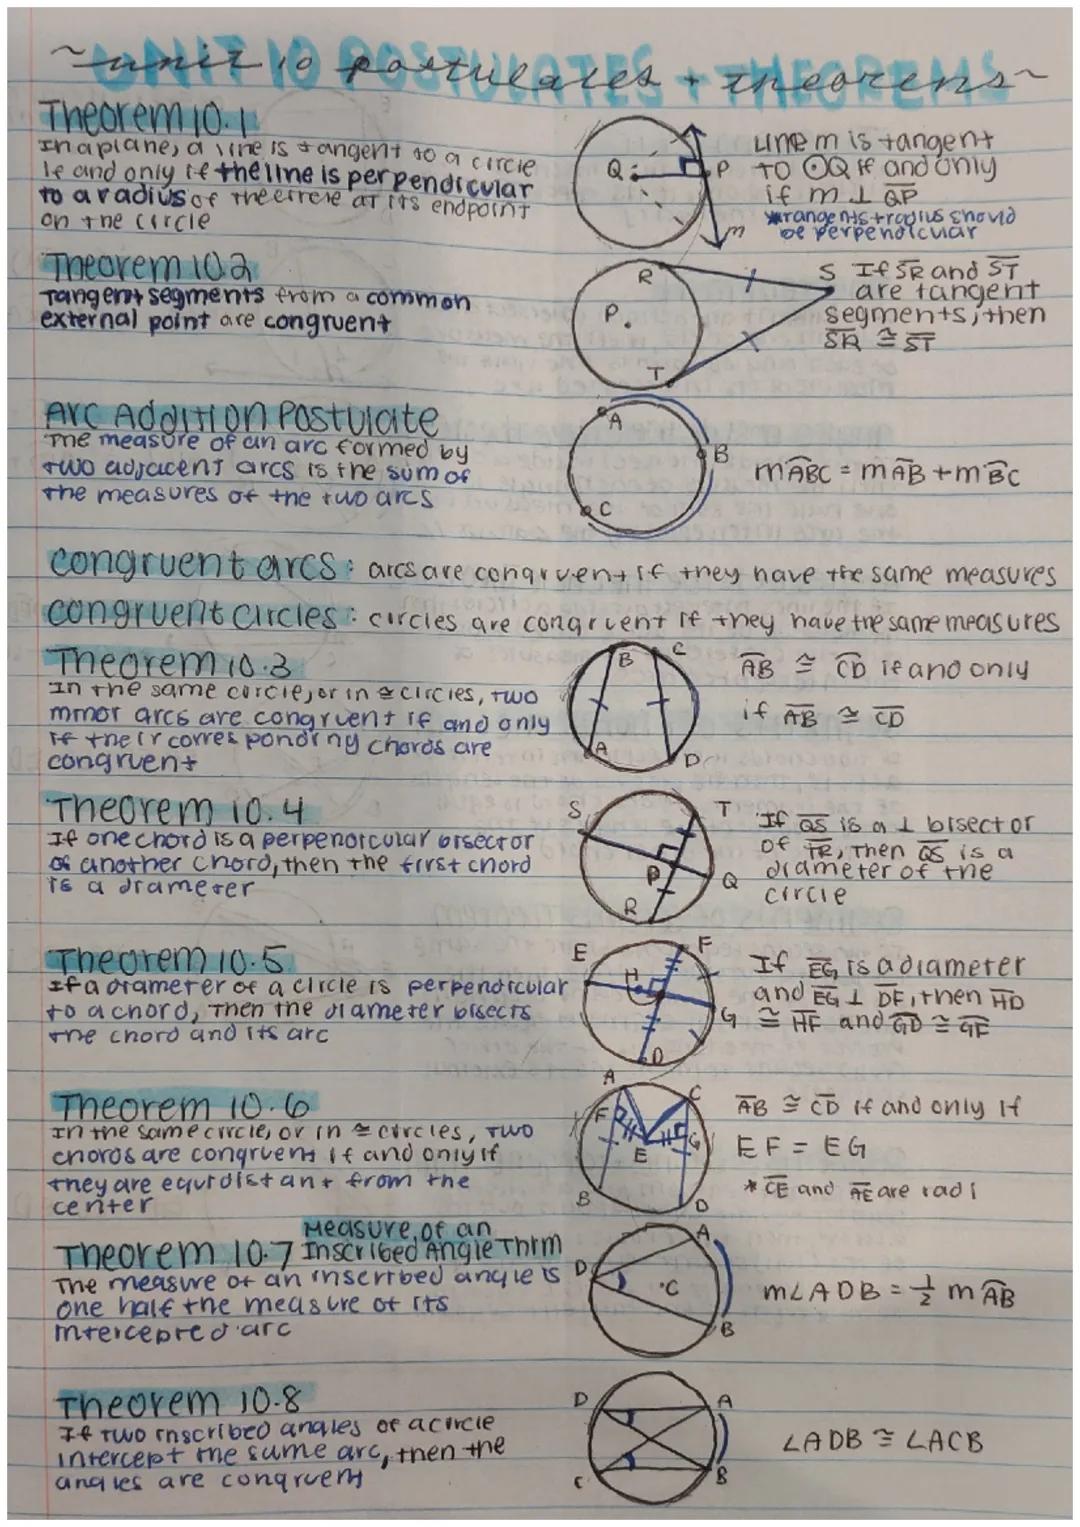 ~unit 10 postulates + theorems~
UNIT 10 POSTULATES + THEOREMS
Theorem 10.1
In a plane, a line is tangent to a circle
if and only if the line is perpendicular
to a radius of the circle at its endpoint
on the circle
Q P m
Line m is tangent
to ⊙Q if and only
if m ⊥ QP
*tangents + radius should
be perpendicular
Theorem 10.2
Tangent segments from a common
external point are congruent
R P. T S
If SR and ST
are tangent
segments, then
SR ≅ ST
Arc Addition Postulate
The measure of an arc formed by
two adjacent arcs is the sum of
the measures of the two arcs
A B C
mABC = mAB + mBC
congruent arcs: arcs are congruent if they have the same measures
congruent circles: circles are congruent if they have the same measures
Theorem 10.3
In the same circle, or in ≅ circles, two
minor arcs are congruent if and only
if their corresponding chords are
congruent
B C A D
AB ≅ CD if and only
if AB ≅ CD
Theorem 10.4
If one chord is a perpendicular bisector
of another chord, then the first chord
is a diameter
S T P Q R
If QS is a ⊥ bisector
of TR, then QS is a
diameter of the
circle
Theorem 10.5
If a diameter of a circle is perpendicular
to a chord, then the diameter bisects
the chord and its arc
E F H G D
If EG is a diameter
and EG ⊥ DF, then HD
≅ HF and GD ≅ GF
Theorem 10.6
In the same circle, or in ≅ circles, two
chords are congruent if and only if
they are equidistant from the
center
A C F G E B D
AB ≅ CD if and only if
EF = EG
* CE and AE are radii
Theorem 10.7 Measure of an
Inscribed Angle Thrm
The measure of an inscribed angle is
one half the measure of its
intercepted arc
A D C B
m∠ADB = 1/2 mAB
Theorem 10.8
If two inscribed angles of a circle
intercept the same arc, then the
angles are congruent
D A C B
∠ADB ≅ ∠ACB